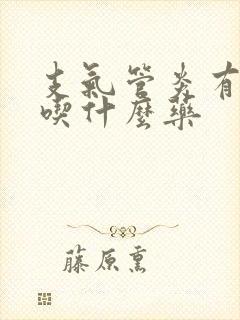 支氣管炎有
喫什麼藥
藤原熏